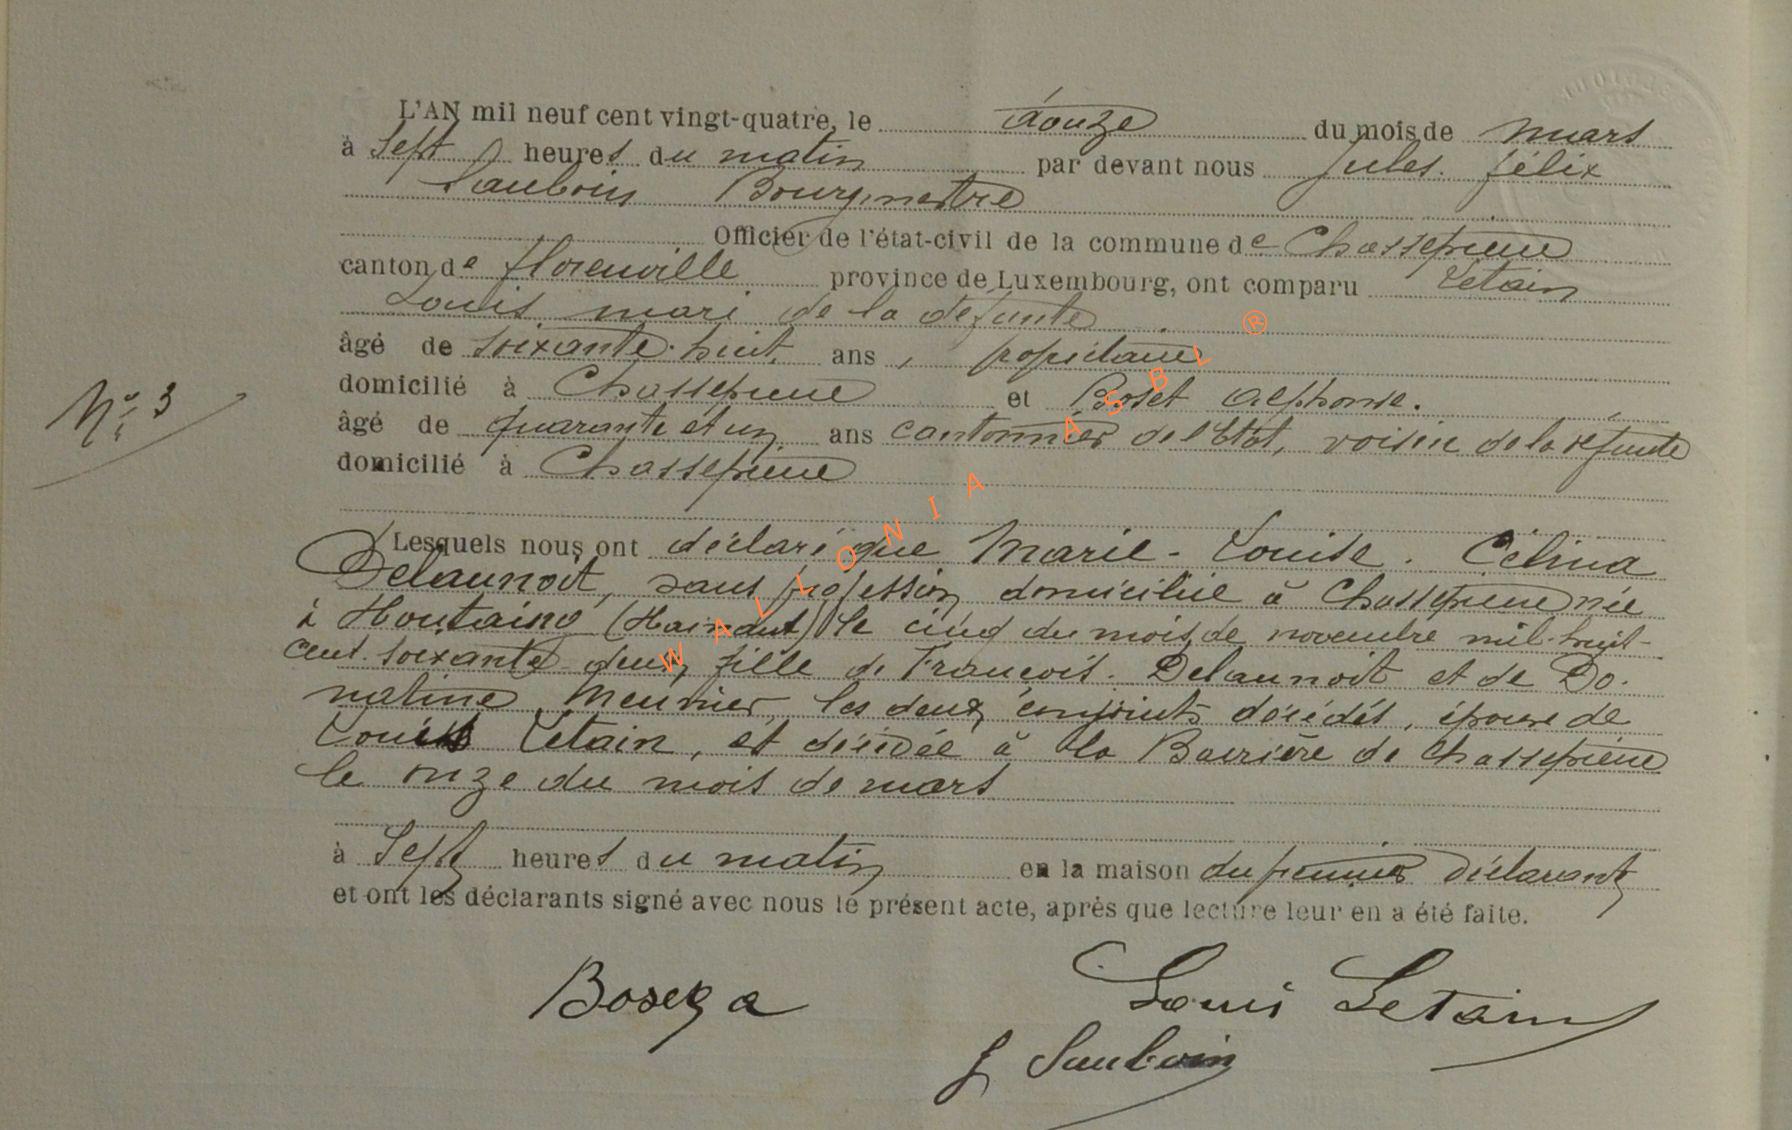 L'AN mil neuf cent vingt-quatre, le douze du mois de mars
à sept heures du matin par devant nous Jules. Félix
Sauboin Bourgmestre
Officier de l'état-civil de la commune de Chassepierre
canton de Florenville province de Luxembourg, ont comparu Létain
Louis, mari de la défunte
âgé de soixante-huit ans, propriétaire
domicilié à Chassepierre et Boset Alphonse.
N° 3
âgé de quarante et un ans cantonnier de l'Etat, voisin de la défunte
domicilié à Chassepierre
Lesquels nous ont déclaré que Marie-Louise. Célina
Delaunoit, sans profession domiciliée à Chassepierre née
à Houtaing (Hainaut) le cinq du mois de novembre mil-huit-
cent-soixante-deux, fille de François. Delaunoit et de Do.
natine Meunier, les deux conjoints décédés, épouse de
Louis Létain, est décédée à la Barrière de Chassepierre
le onze du mois de mars
à Sept heures du matin en la maison du premier déclarant
et ont les déclarants signé avec nous le présent acte, après que lecture leur en a été faite.
Louis Letain
J Sauboin
WALLONIA ASBL ®